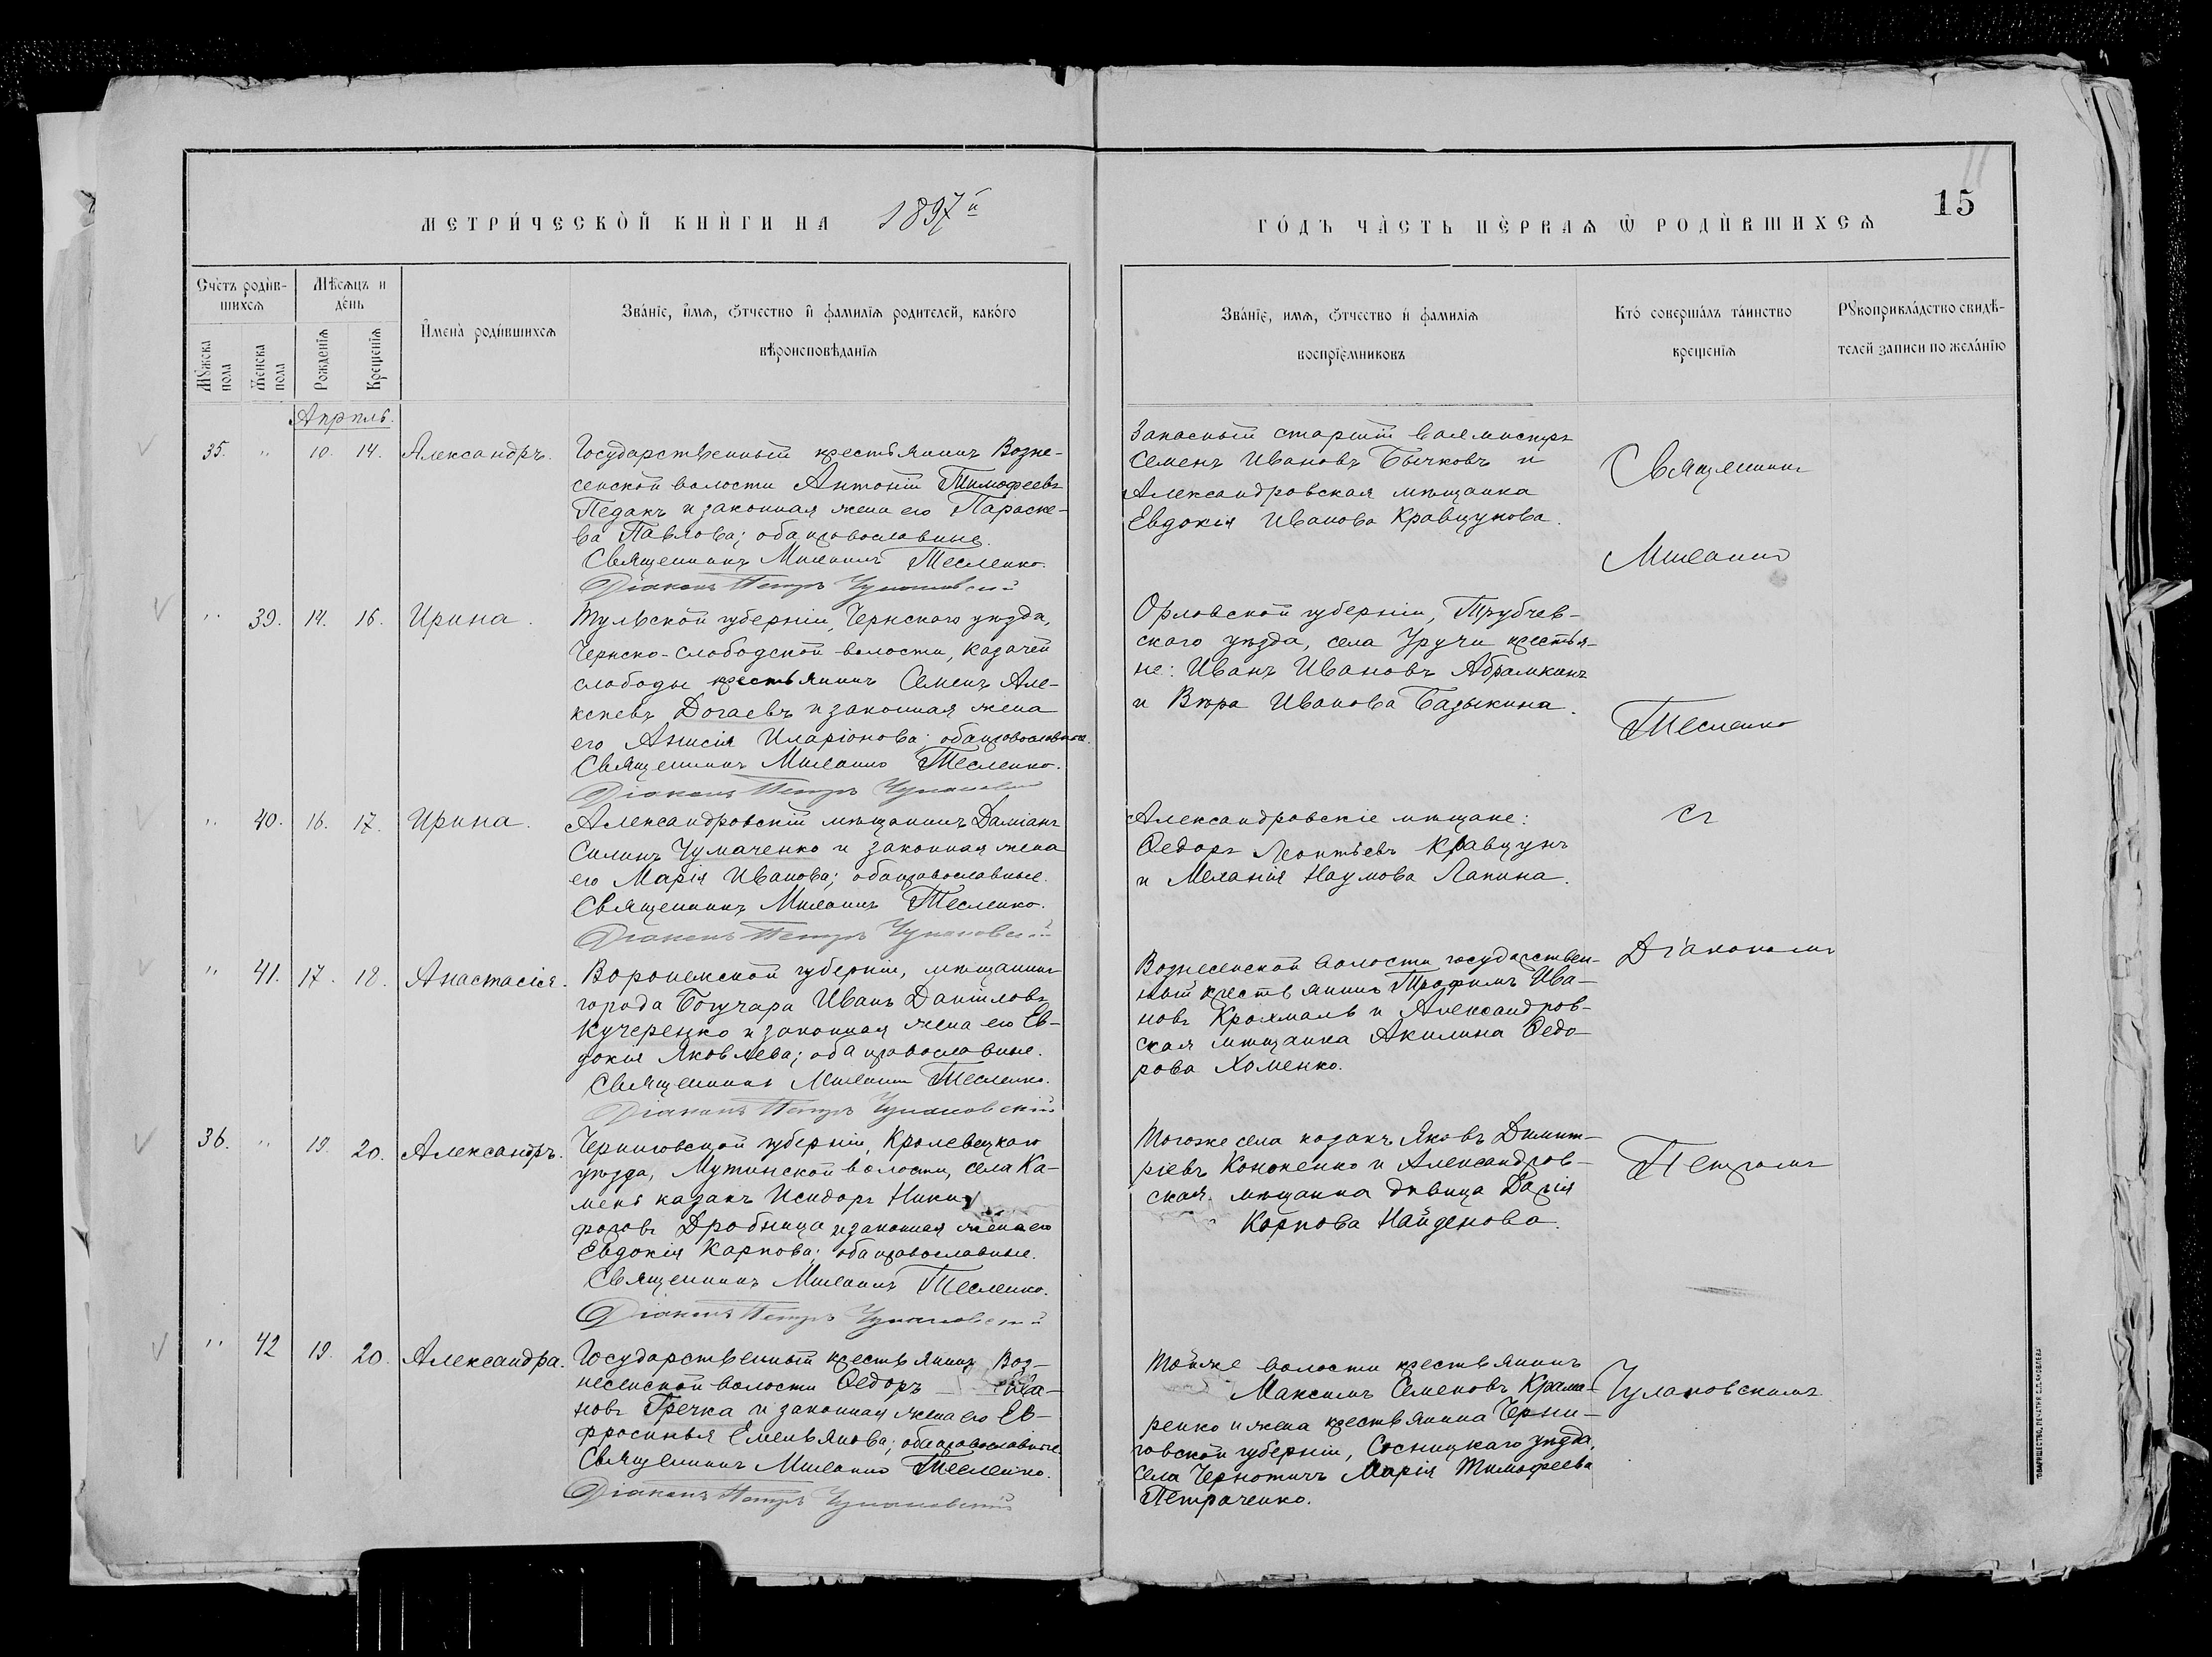 МЕТРИ́ЧЕСКОЙ КНИ́ГИ НА 1897й
ГО́ДЪ ЧА́СТЬ ПЕ́РВАѦ Ѿ РОДИ́ВШИХСѦ
15
Сче́тъ роди́в-
шихсѧ
Мѣ́сѧцъ и
де́нь
Мꙋ́жеска пола
Же́нска пола
Рожденїѧ
Крещенїѧ
Имена̀ роди́вшихсѧ
Зва́нїе, и́мѧ, ѻ́тчество и фамилїѧ родителей, како́го
вѣроисповѣданїѧ
Зва́нїе, имѧ, ѻ́тчество и фамилїѧ
воспрїемниковъ
Кто́ соверша́лъ та́инство
крещенїѧ
Рꙋкоприкла́дство свидѣ-
телей записи по жела́нїю
Апрѣль.
35. " 10. 14. Александръ.
Государственный крестьянинъ Возне-
сенской волости Антоній Тимофеевъ
Педакъ и законная жена его Параске-
ва Павлова; оба православные.
Священникъ Тесленко.
Діаконъ Петръ
Запасный старшій вахмистръ
Семенъ Ивановъ Бычковъ и
Александровская мѣщанка
Евдокія Иванова Кравцунова.
Священникъ
Тесленко
съ
Діакономъ
Петромъ
" 39. 14. 16. Ирина.
Тульской губерніи, Чернскаго уѣзда,
Чернско-слободской волости, казачей
слободы крестьянинъ Семенъ Але-
ксѣевъ Догаевъ и законная жена
его Анисія Иларіонова; оба православные.
Священникъ Тесленко.
Діаконъ Петръ
Орловской губерніи, Трубчев-
скаго уѣзда, села Уручи крестья-
не: Иванъ Ивановъ Абрамкинъ
и Вѣра Иванова Базыкина.
" 40. 16. 17. Ирина.
Александровскій мѣщанинъ Даміанъ
Силинъ Чумаченко и законная жена
его Марія Иванова; оба православные.
Священникъ Тесленко.
Діаконъ Петръ
Александровскіе мѣщане:
Ѳедоръ Леонтьевъ Кравцунъ
и Меланія Наумова Лапина.
" 41. 17. 18. Анастасія.
Воронежской губерніи, мѣщанинъ
города Богучара Иванъ Даніиловъ
Кучеренко и законная жена его Ев-
докія Яковлева; оба православные.
Священникъ Тесленко.
Діаконъ Петръ
Вознесенской волости государствен-
ный крестьянинъ Трофимъ Ива-
новъ Крохмаль и Александров-
ская мѣщанка Акилина Ѳедо-
рова Хоменко.
36. " 19. 20. Александръ.
Черниговской губерніи, Кролевецкаго
уѣзда, Мутинской волости, села Ка-
мень казакъ Исидоръ Ники-
форовъ Дробница и законная жена его
Евдокія Карпова; оба православные.
Священникъ Тесленко.
Діаконъ Петръ
Тогоже села казакъ Яковъ Димит-
ріевъ Кононенко и Александров-
ская мѣщанка дѣвица Дарія
Карпова Найденова.
" 42 19. 20. Александра.
Государственный крестьянинъ Воз-
несенской волости Ѳедоръ Ива-
новъ Гречка и законная жена его Ев-
фросинья Емельянова; оба православные.
Священникъ Тесленко.
Діаконъ Петръ
Тойже волости крестьянинъ
Максимъ Семеновъ Крама-
ренко и жена крестьянина Черни-
говской губерніи, Сосницкаго уѣзда,
села Чернотичъ Марія Тимофеева
Петраченко.